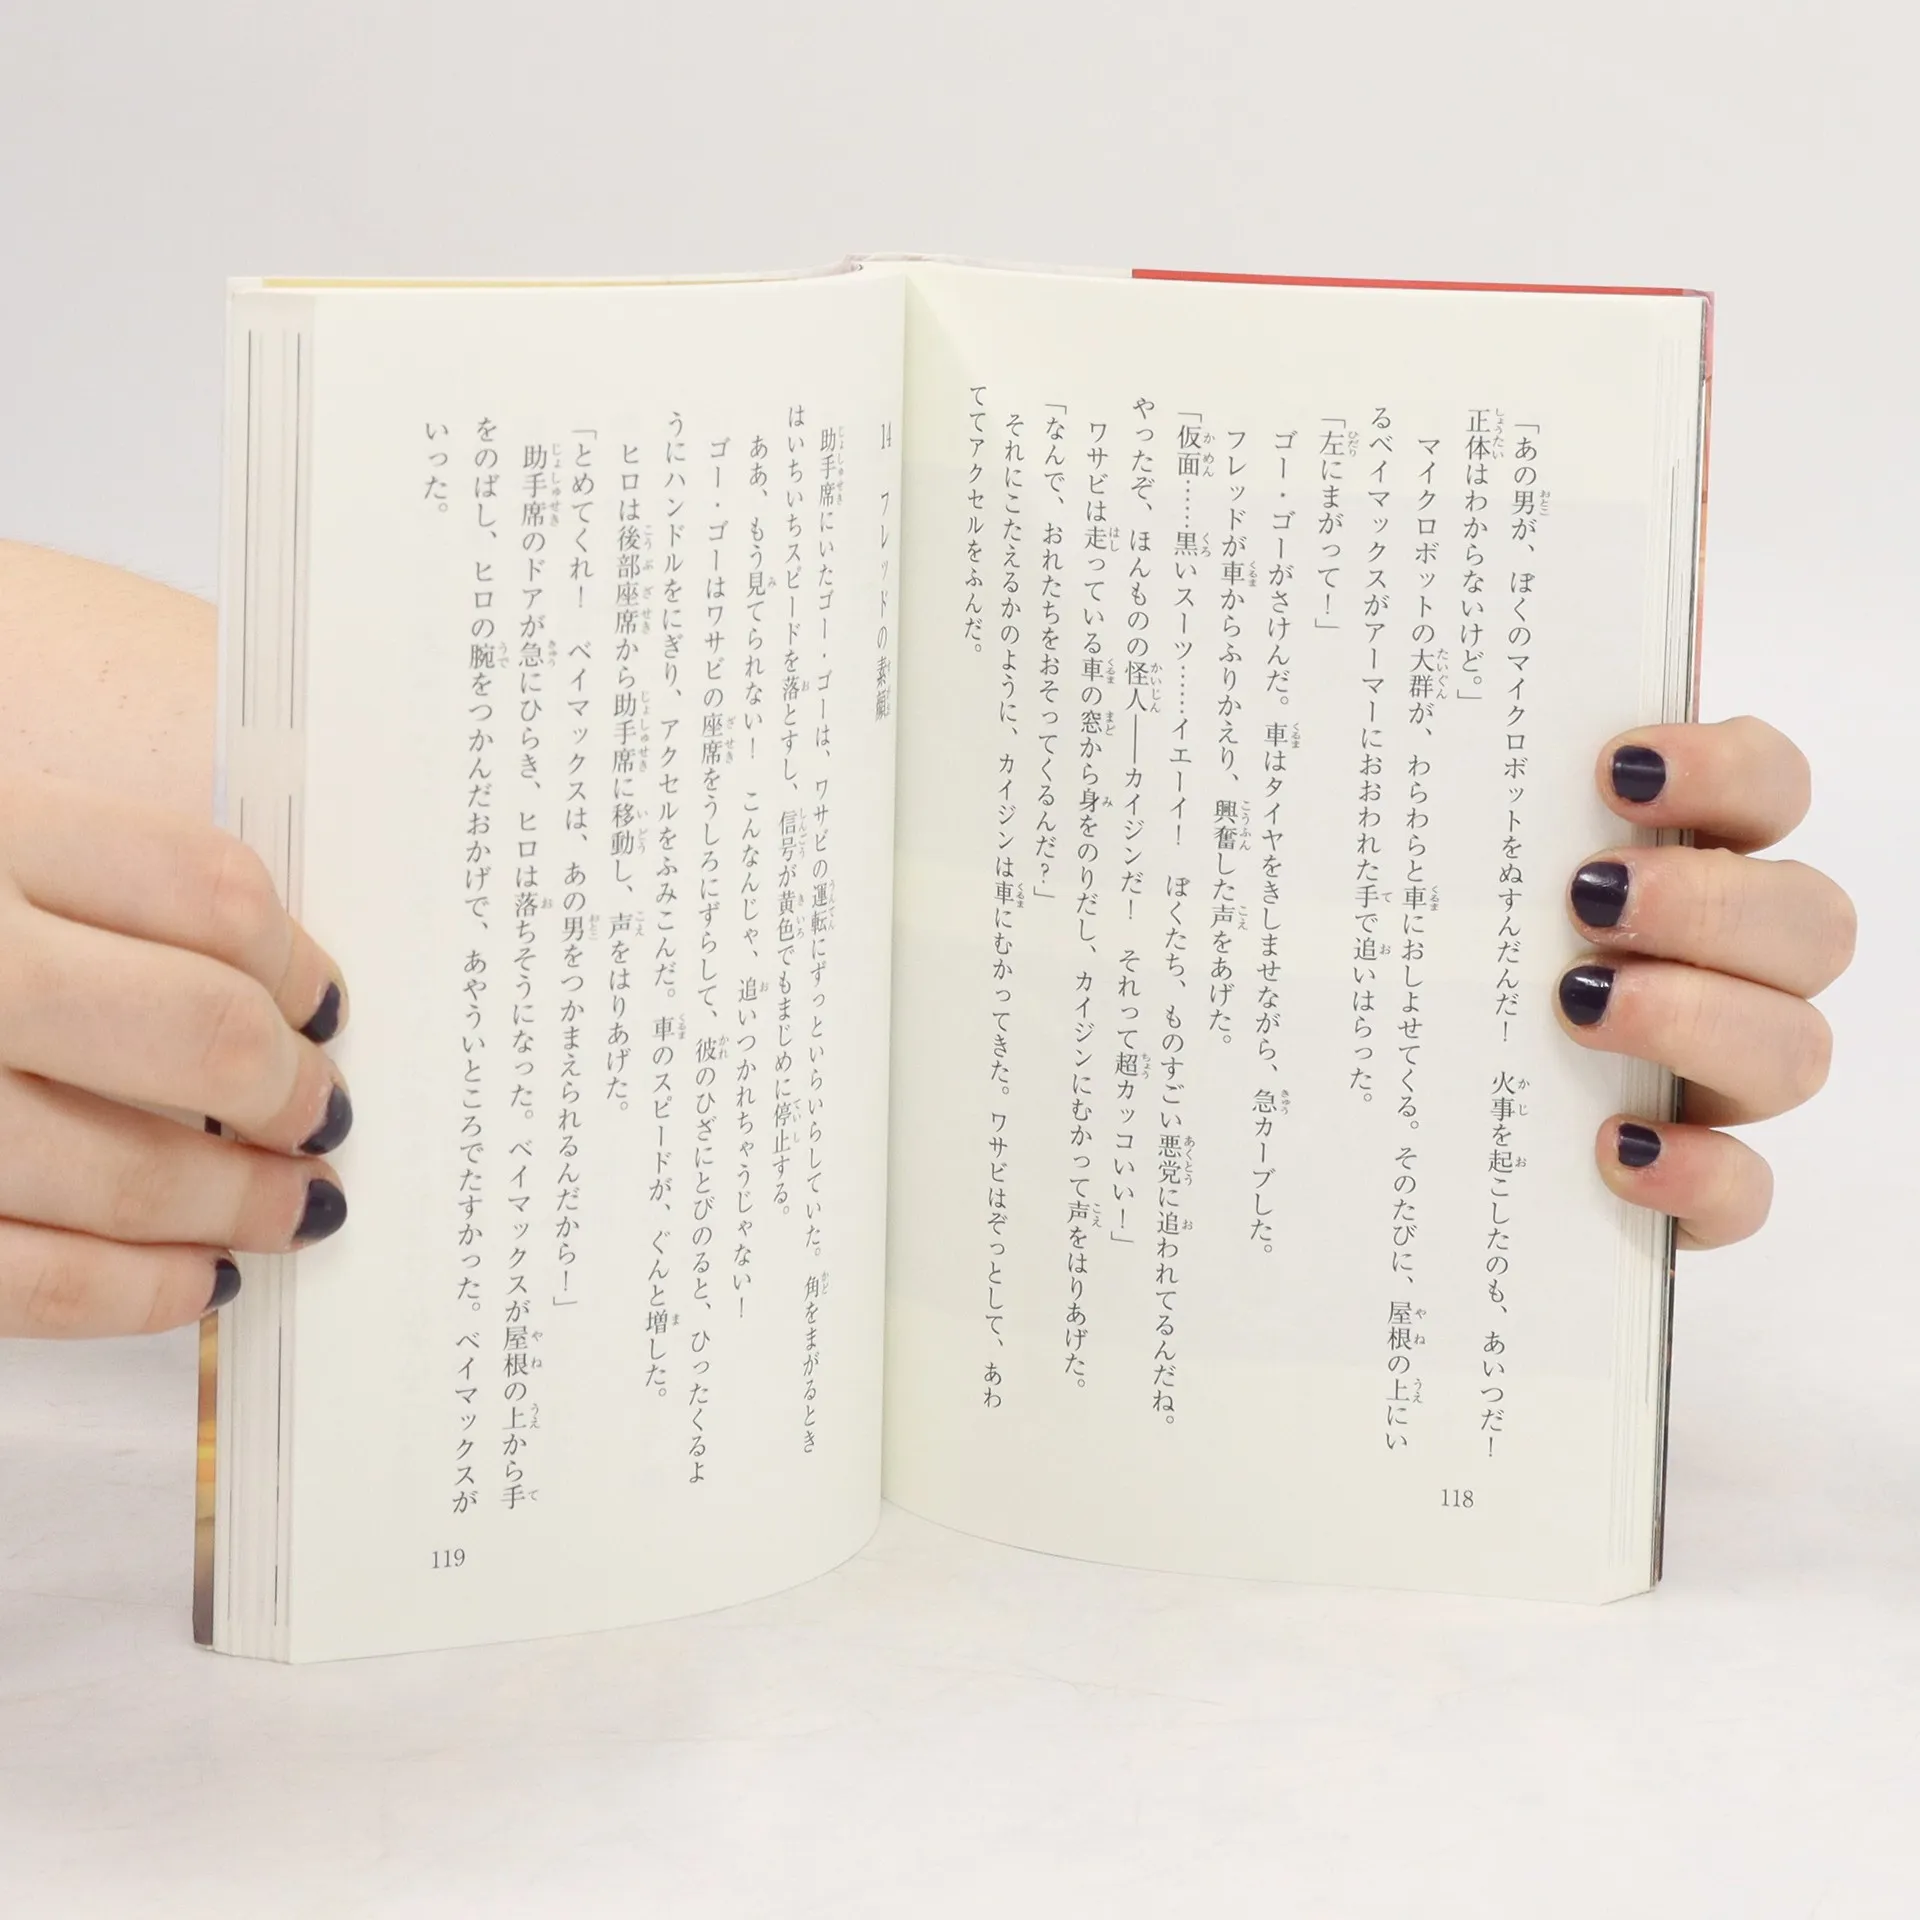 「あの男が、ぼくのマイクロボットをぬすんだんだ！　火事を起こしたのも、あいつだ！
正体はわからないけど。」
マイクロボットの大群が、わらわらと車におしよせてくる。そのたびに、屋根の上にい
るベイマックスがアーマーにおおわれた手で追いはらった。
「左にまがって！」
ゴー・ゴーがさけんだ。車はタイヤをきしませながら、急カーブした。
フレッドが車からふりかえり、興奮した声をあげた。
「仮面……黒いスーツ……イエーイ！　ぼくたち、ものすごい悪党に追われてるんだね。
やったぞ、ほんものの怪人――カイジンだ！　それって超カッコいい！」
ワサビは走っている車の窓から身をのりだし、カイジンにむかって声をはりあげた。
「なんで、おれたちをおそってくるんだ？」
それにこたえるかのように、カイジンは車にむかってきた。ワサビはぞっとして、あわ
ててアクセルをふんだ。
118
14　フレッドの素顔
助手席にいたゴー・ゴーは、ワサビの運転にずっといらいらしていた。角をまがるとき
はいちいちスピードを落とすし、信号が黄色でもまじめに停止する。
ああ、もう見てられない！　こんなんじゃ、追いつかれちゃうじゃない！
ゴー・ゴーはワサビの座席をうしろにずらして、彼のひざにとびのると、ひったくるよ
うにハンドルをにぎり、アクセルをふみこんだ。車のスピードが、ぐんと増した。
ヒロは後部座席から助手席に移動し、声をはりあげた。
「とめてくれ！　ベイマックスは、あの男をつかまえられるんだから！」
助手席のドアが急にひらき、ヒロは落ちそうになった。ベイマックスが屋根の上から手
をのばし、ヒロの腕をつかんだおかげで、あやういところでたすかった。ベイマックスが
いった。
119